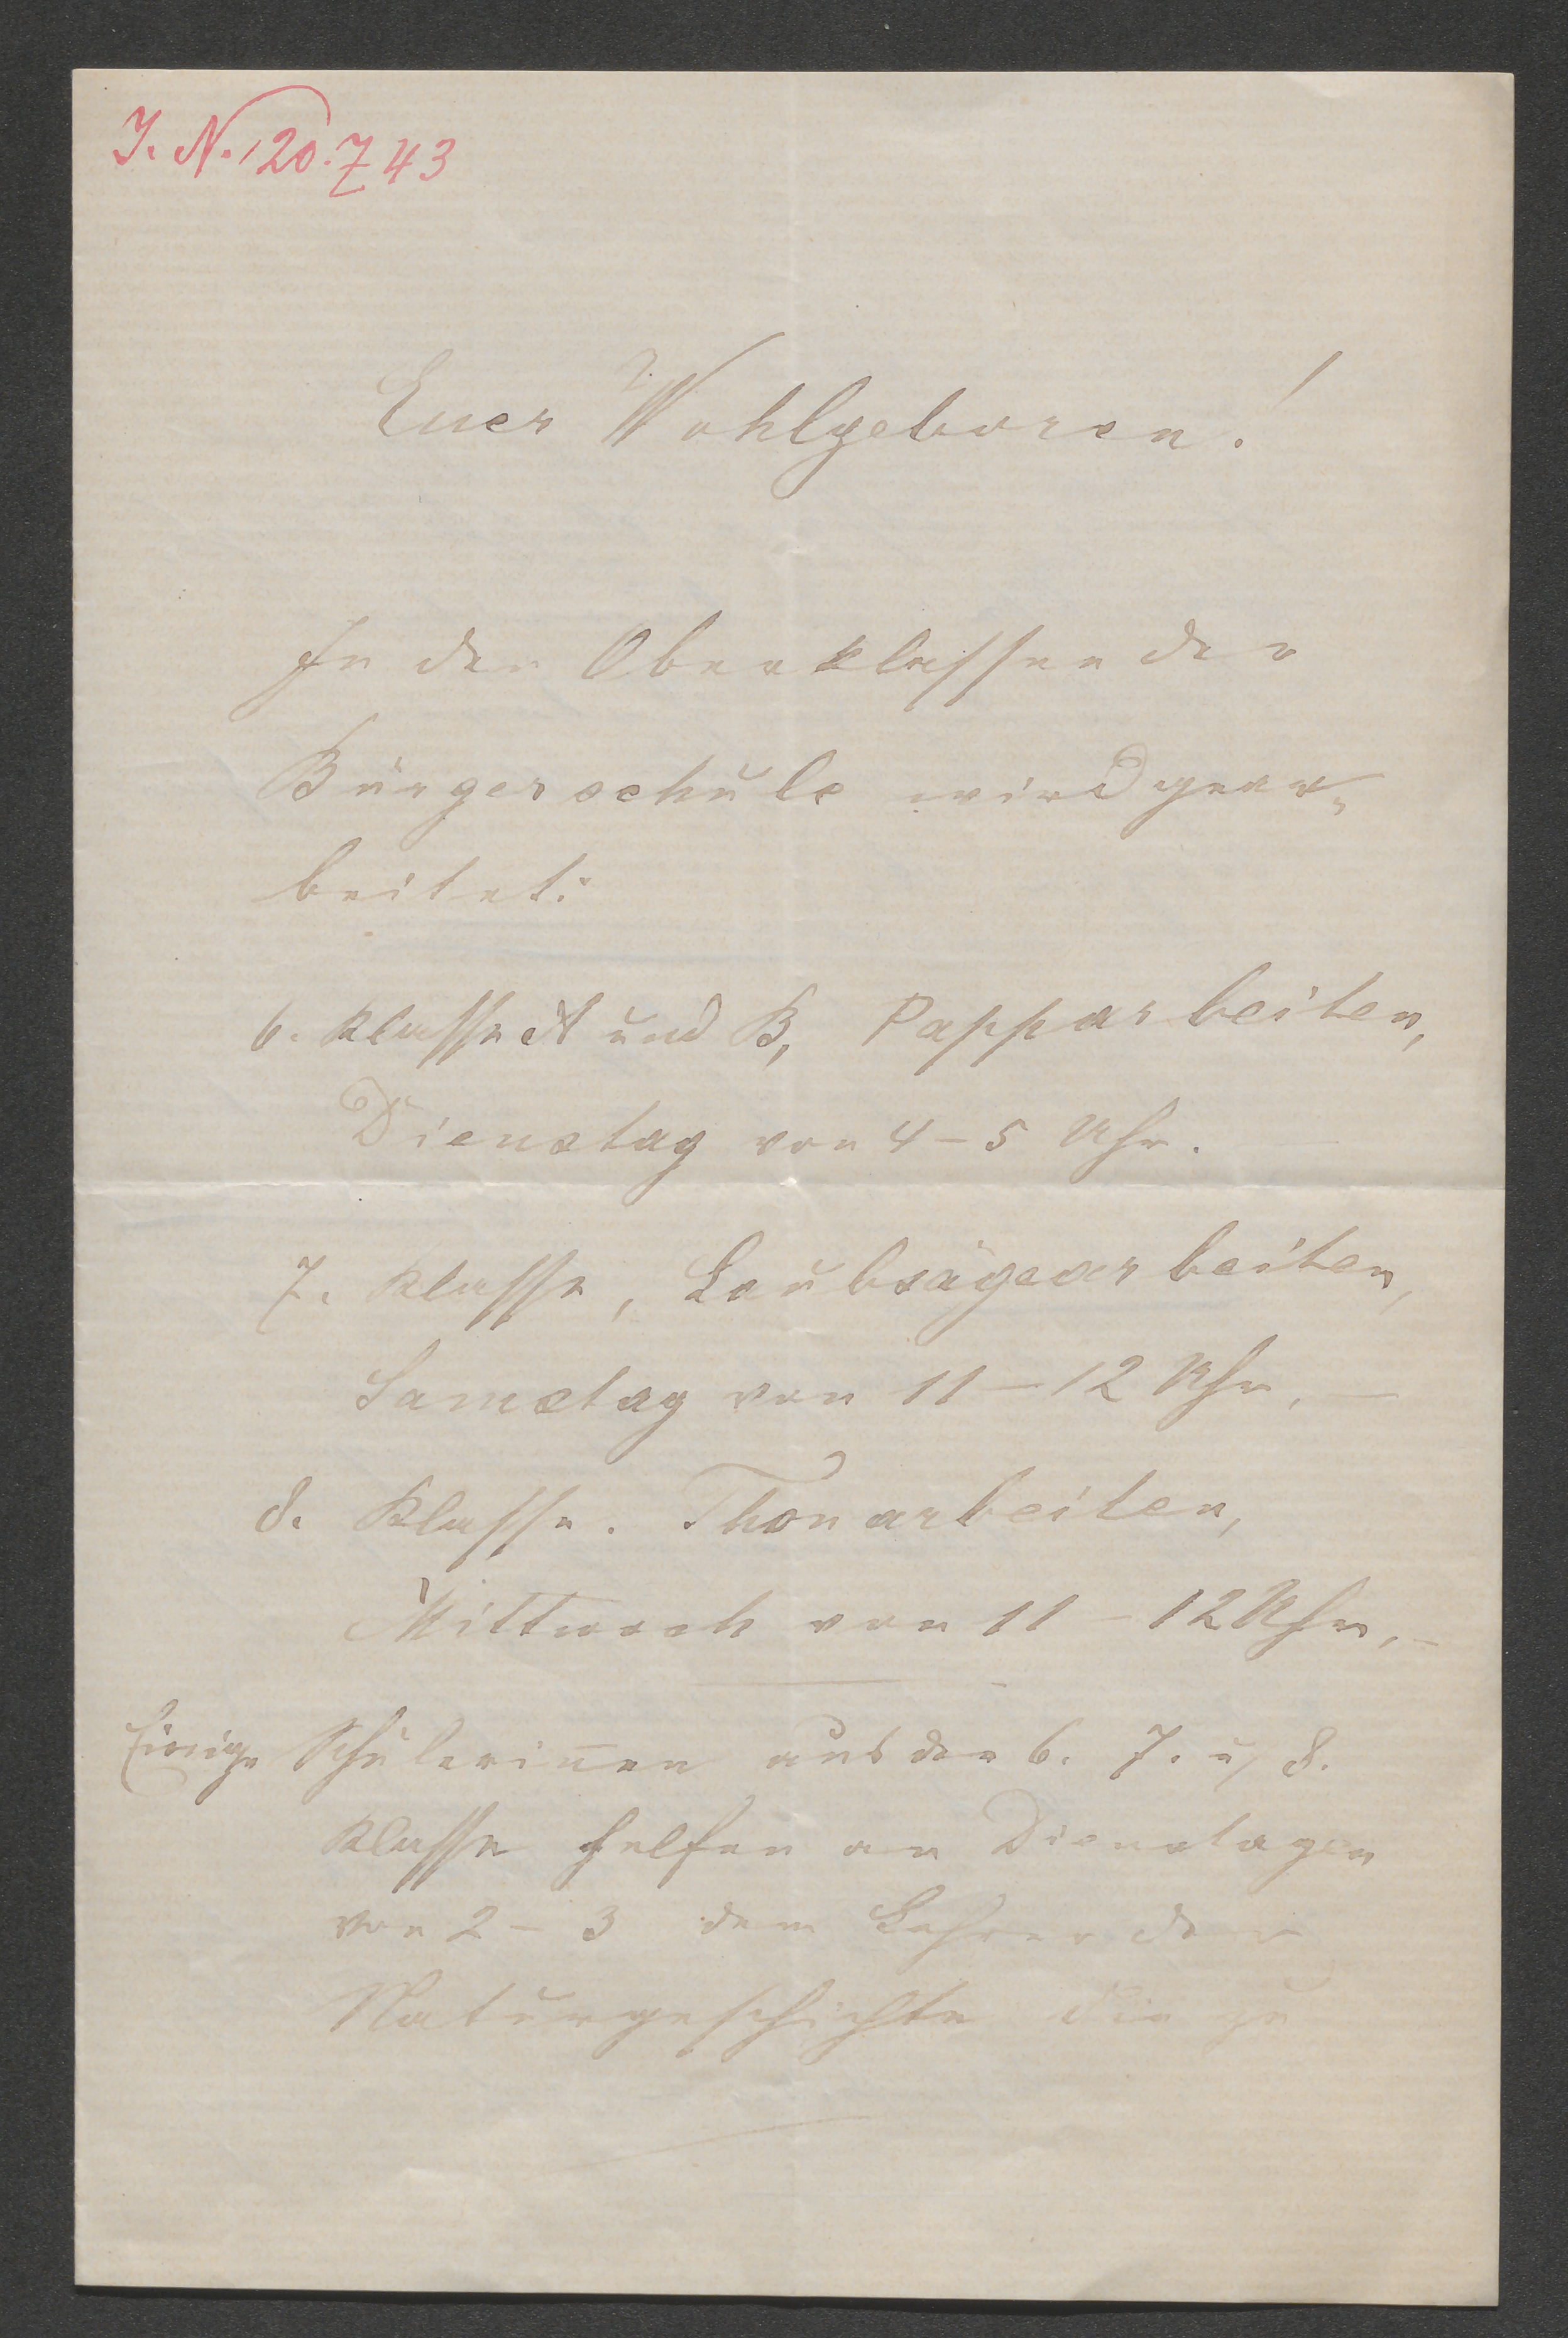 J. N. 120.743
Euer Wohlgeboren!
In den Oberklassen der
Bürgerschule wird gear-
beitet:
6. Klasse A und B, Papparbeiten,
Dienstag von 4-5 Uhr.
7. Klasse, Laubsägearbeiten,
Samstag von 11-12 Uhr, -
8. Klasse. Thonarbeiten,
Mittwoch von 11-12 Uhr, -
Einige Schülerin̅en aus der 6. 7. u, 8.
Klasse helfen an Dienstagen
von 2-3 dem Lehrer der
Naturgeschichte die zu